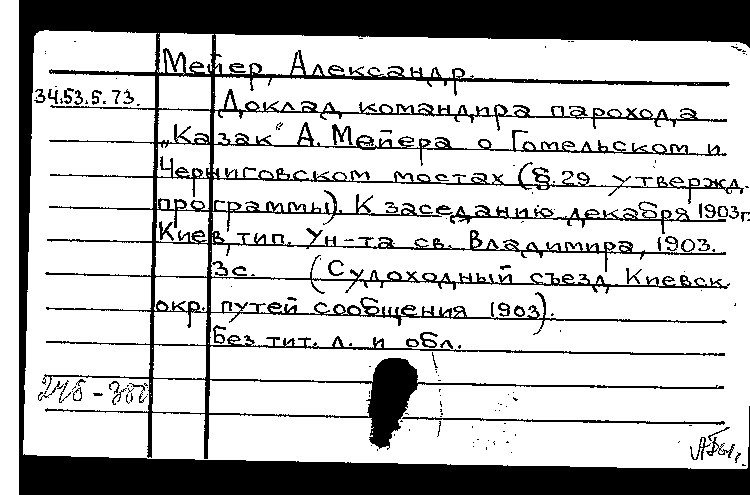 Мейер, Александр.
34.53.5.73. Доклад командира парохода
„Казак" А. Мейера о Гомельском и
Черниговском мостах (§.29 утвержд.
программы). К заседанию декабря 1903г.
Киев, тип. Ун-та св. Владимира, 1903.
3с. (Судоходный съезд Киевск.
окр. путей сообщения 1903).
Без тит. л. и обл.